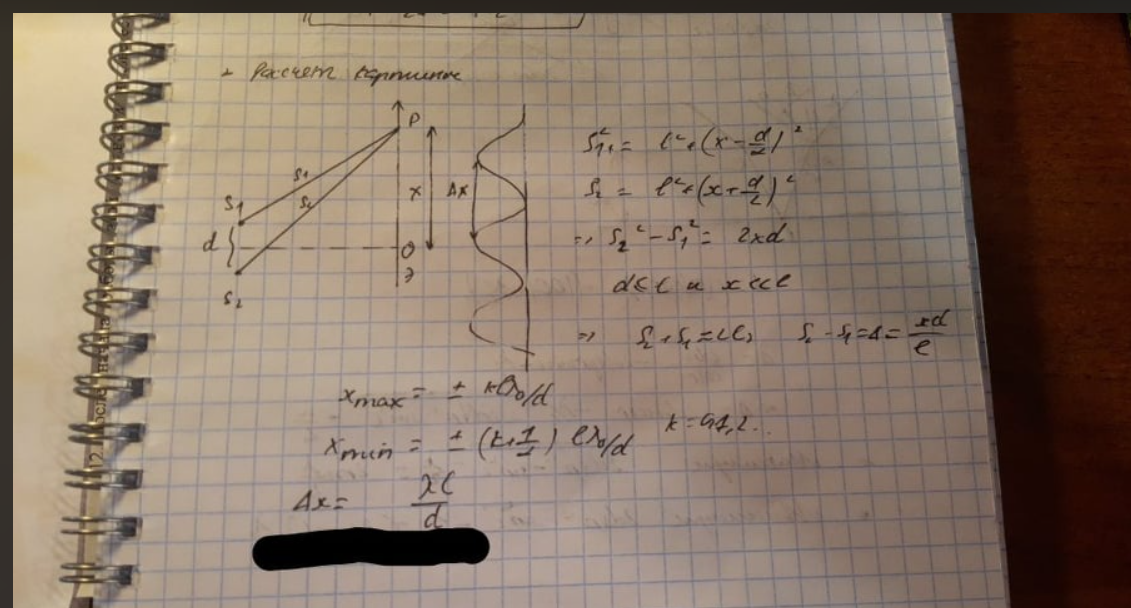 + Рассчет картинки
P
S1
S2
S1
d
S2
x
Δx
O
Э
S1² = l² + (x - d/2)²
S2 = l² + (x + d/2)²
=> S2² - S1² = 2xd
d << l и x << l
=> S2 + S1 = 2l, S2 - S1 = Δ = xd/l
xmax = ± klλ0/d
xmin = ± (k + 1/2) lλ0/d
k = 0,1,2..
Δx = λl/d